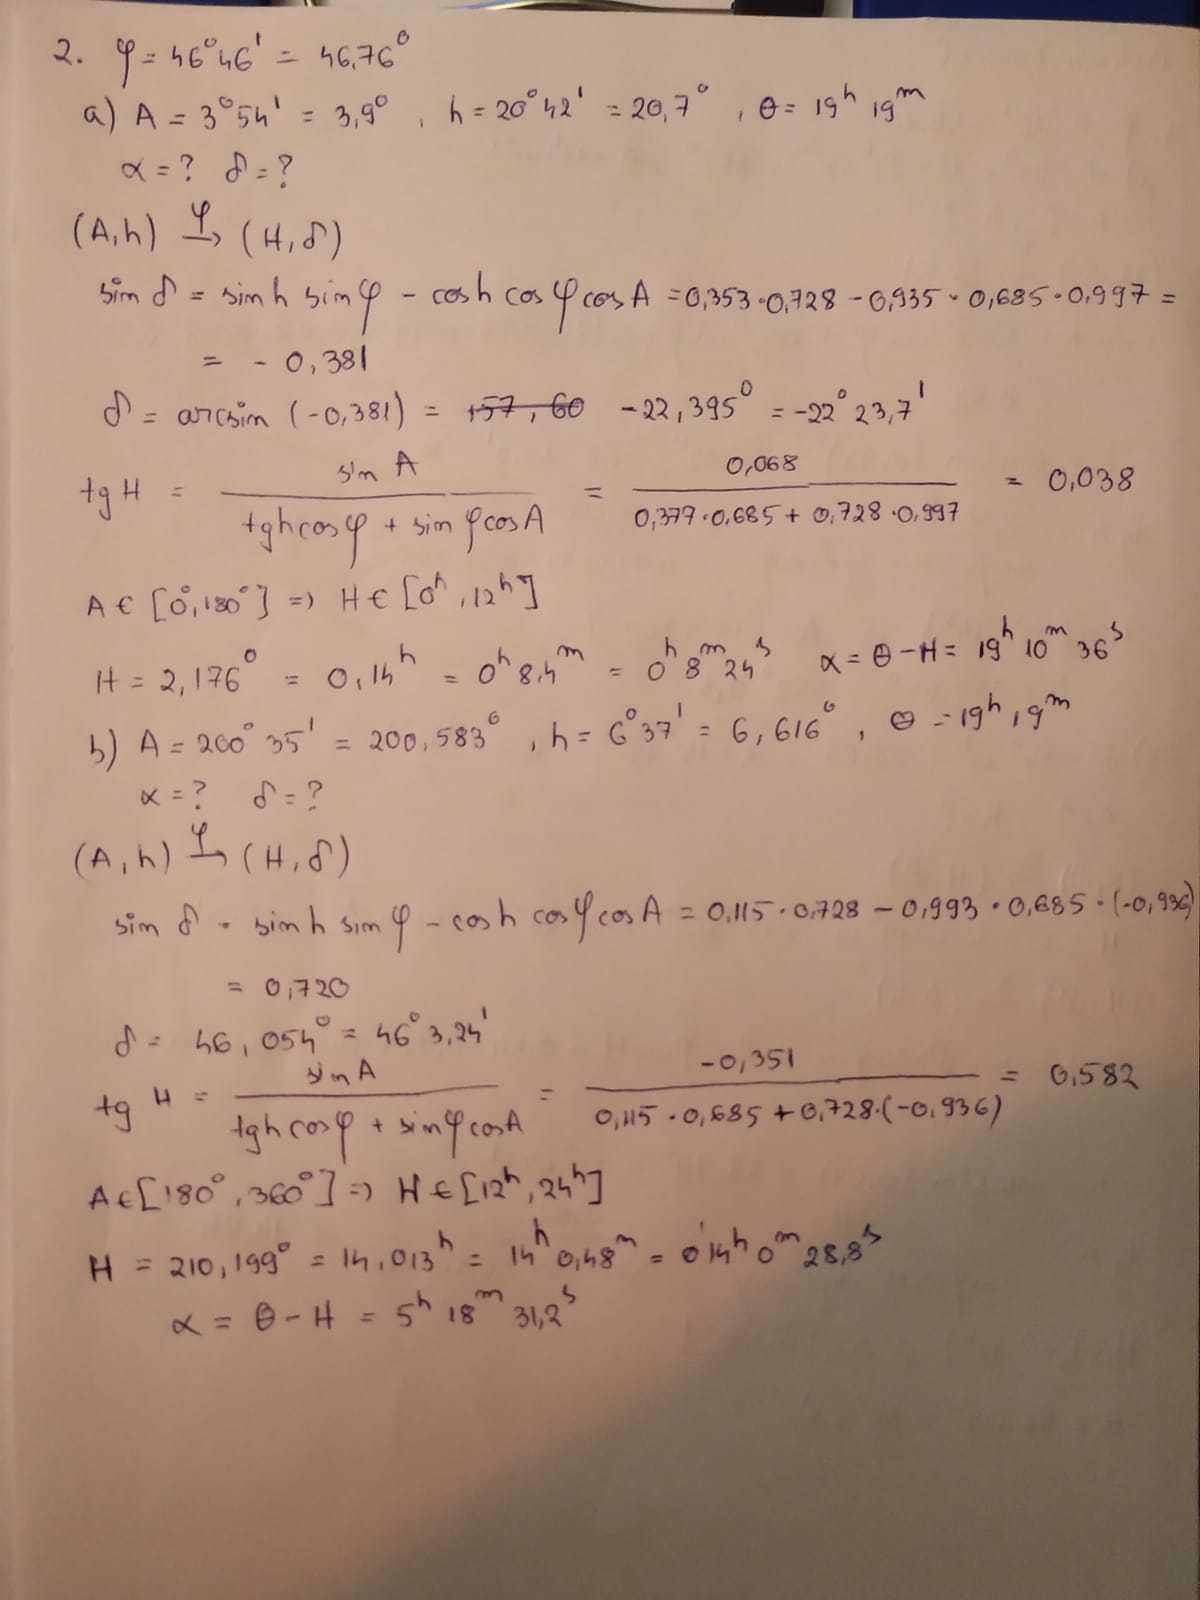 2. φ = 46°46' = 46,76°
a) A = 3°54' = 3,9° , h = 20°42' = 20,7° , θ = 19ʰ 19ᵐ
α = ? δ = ?
(A,h) →^φ (H,δ)
sin δ = sin h sin φ - cos h cos φ cos A = 0,353·0,728 - 0,935·0,685·0,997 =
= - 0,381
δ = arcsin (-0,381) = -22,395° = -22° 23,7'
tg H = sin A / (tg h cos φ + sin φ cos A) = 0,068 / (0,377·0,685 + 0,728·0,997) = 0,038
A ∈ [0°,180°] => H ∈ [0ʰ,12ʰ]
H = 2,176° = 0,14ʰ = 0ʰ 8,4ᵐ = 0ʰ 8ᵐ 24ˢ α = θ - H = 19ʰ 10ᵐ 36ˢ
b) A = 200° 35' = 200,583° , h = 6°37' = 6,616° , θ = 19ʰ 19ᵐ
α = ? δ = ?
(A,h) →^φ (H,δ)
sin δ = sin h sin φ - cos h cos φ cos A = 0,115·0,728 - 0,993·0,685·(-0,936)
= 0,720
δ = 46,054° = 46° 3,24'
tg H = sin A / (tg h cos φ + sin φ cos A) = -0,351 / (0,115·0,685 + 0,728·(-0,936)) = 0,582
A ∈ [180°,360°] => H ∈ [12ʰ,24ʰ]
H = 210,199° = 14,013ʰ = 14ʰ 0,48ᵐ = 14ʰ 0ᵐ 28,8ˢ
α = θ - H = 5ʰ 18ᵐ 31,2ˢ